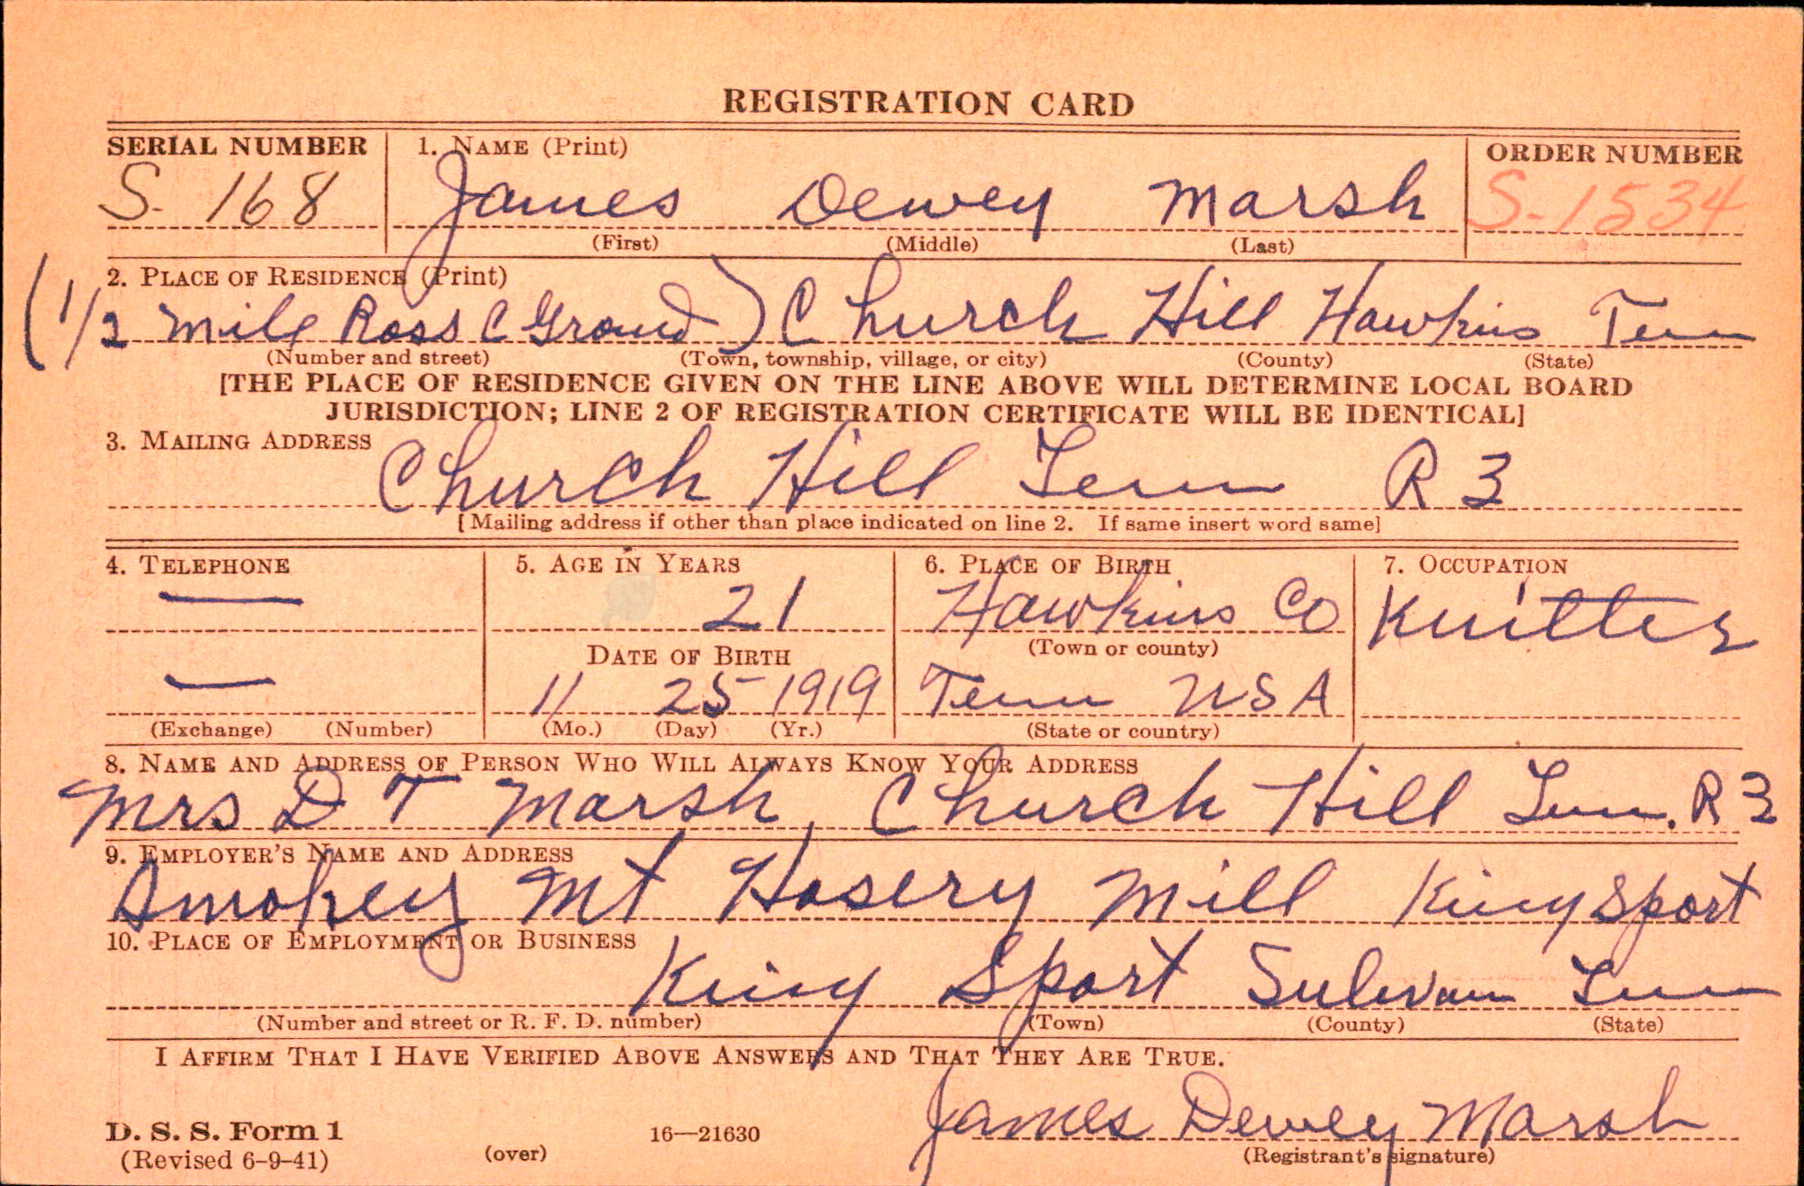 REGISTRATION CARD
SERIAL NUMBER 1. NAME (Print) ORDER NUMBER
S. 168 James Dewey Marsh S-1534
(First) (Middle) (Last)
2. PLACE OF RESIDENCE (Print)
(1/2 Mile Ross C Ground) Church Hill Hawkins Tenn
(Number and street) (Town, township, village, or city) (County) (State)
[THE PLACE OF RESIDENCE GIVEN ON THE LINE ABOVE WILL DETERMINE LOCAL BOARD
JURISDICTION; LINE 2 OF REGISTRATION CERTIFICATE WILL BE IDENTICAL]
3. MAILING ADDRESS
Church Hill Tenn R 3
[Mailing address if other than place indicated on line 2. If same insert word same]
4. TELEPHONE 5. AGE IN YEARS 6. PLACE OF BIRTH 7. OCCUPATION
— 21 Hawkins Co Knitter
DATE OF BIRTH (Town or county)
— 11 25 1919 Tenn USA
(Exchange) (Number) (Mo.) (Day) (Yr.) (State or country)
8. NAME AND ADDRESS OF PERSON WHO WILL ALWAYS KNOW YOUR ADDRESS
Mrs D T Marsh, Church Hill Tenn. R 3
9. EMPLOYER'S NAME AND ADDRESS
Smokey Mt Hosery Mill King Sport
10. PLACE OF EMPLOYMENT OR BUSINESS
King Sport Sulivan Tenn
(Number and street or R. F. D. number) (Town) (County) (State)
I AFFIRM THAT I HAVE VERIFIED ABOVE ANSWERS AND THAT THEY ARE TRUE.
James Dewey Marsh
D. S. S. Form 1 16—21630
(Revised 6-9-41) (over) (Registrant's signature)